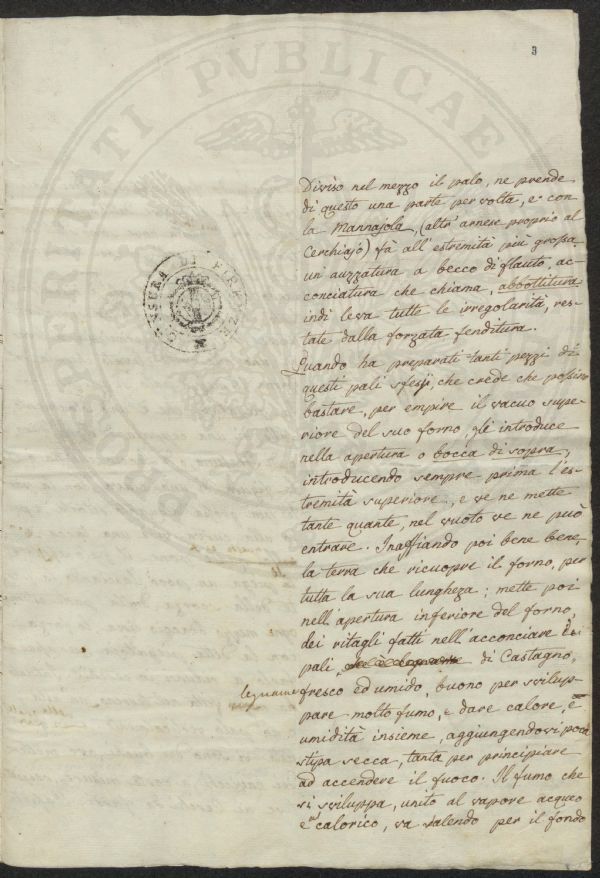 3
PROSPERITATI PVBLICAE
CENSURA DI FIRENZE
Diviso nel mezzo il palo, ne prende
di questo una parte per volta, e con
la Mannajola, (altr' arnese proprio al
Cerchiajo) fà all' estremità più grossa
un' auzzatura a becco di flauto, ac-
conciatura che chiama, abbottitura
indi leva tutte le irregolarità, res-
tate dalla forzata fenditura.
Quando ha preparati tanti pezzi di
questi pali sfessi, che crede che possino
bastare, per empire il vacuo supe-
riore del suo forno, gl' introduce
nella apertura o bocca di sopra,
introducendo sempre prima l'es-
tremità superiore, e ve ne mette
tante quante, nel vuoto ve ne può
entrare. Inaffiando poi bene bene
la terra che ricuopre il forno, per
tutta la sua lungheza; mette poi
nell' apertura inferiore del forno,
dei ritagli fatti nell' acconciare i
pali, di Castagno,
legname fresco ed umido, buono per svilup-
pare molto fumo, e dare calore, e
umidità insieme, aggiungendovi poca
stipa secca, tanta per principiare
ad accendere il fuoco. Il fumo che
si sviluppa, unito al vapore acqueo
e al calorico, va salendo per il fondo